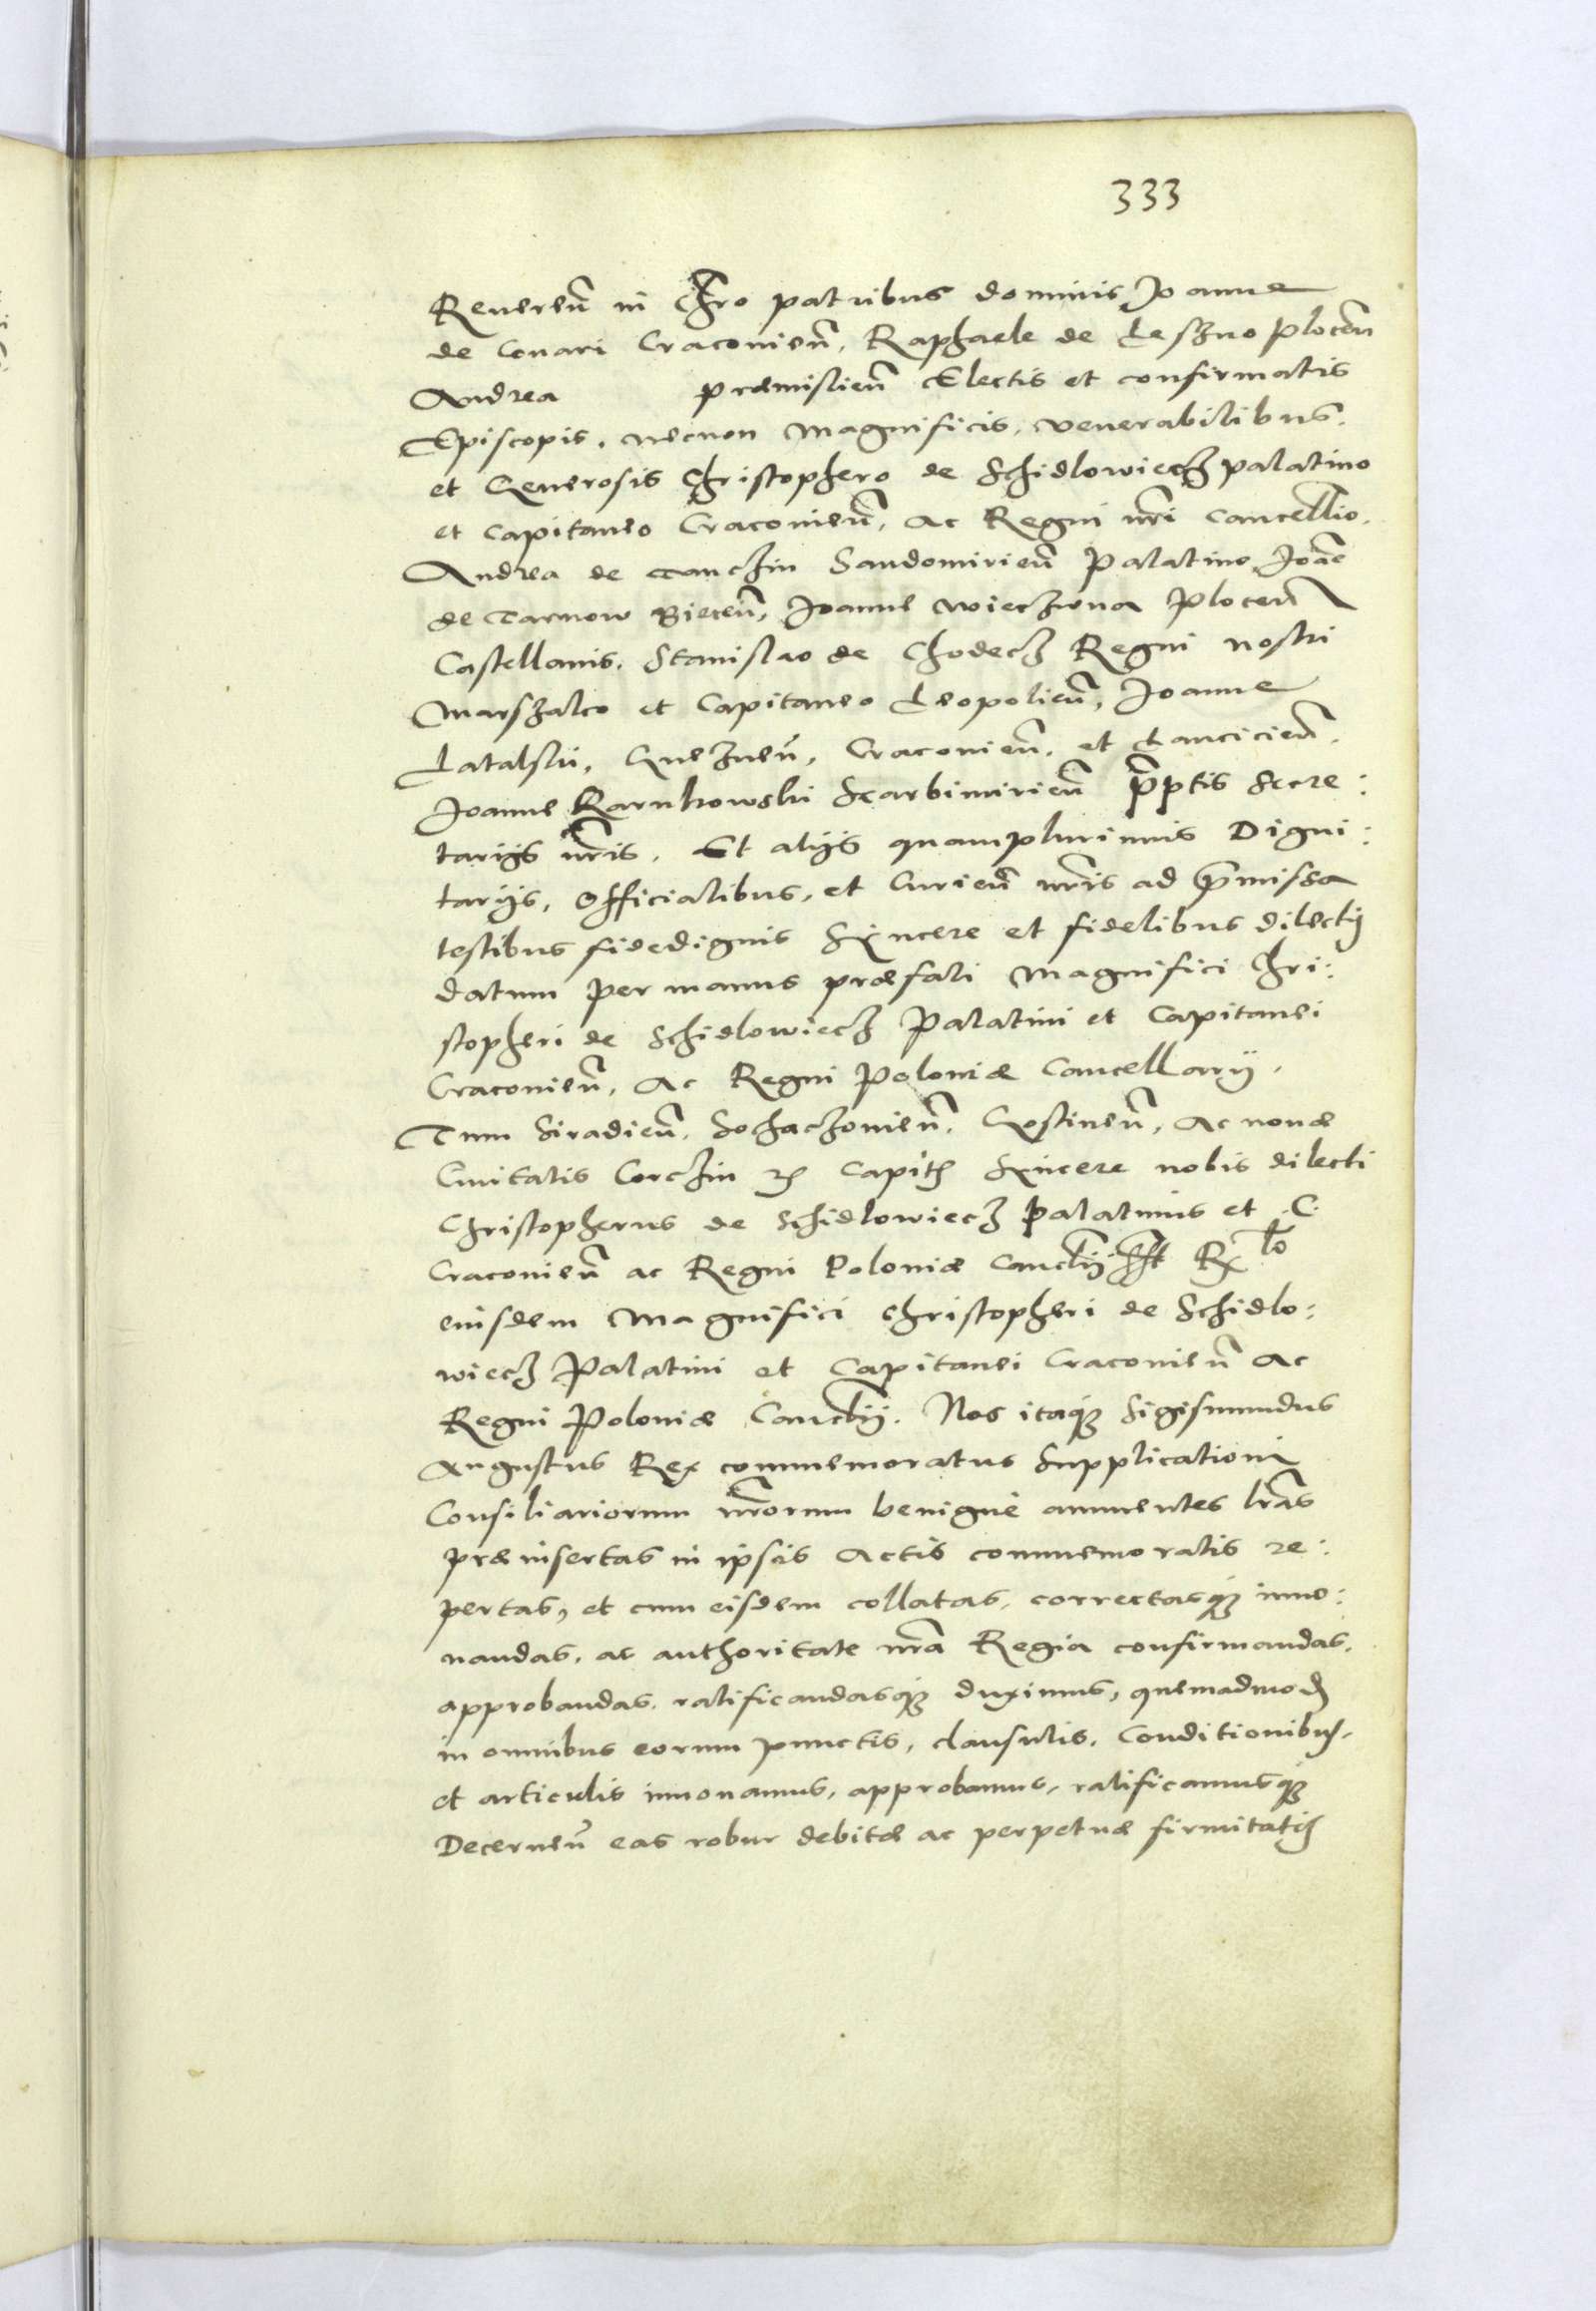 333
Reueren̄ in Chro patribus dominis Joanne
de Conari Craconien̄, Raphaele de Leszno Plocen̄
Andrea præmislien̄ Electis et confirmatis
Episcopis, necnon Magnificis, venerabilibus,
et Generosis Christophero de Schidlowiecz palatino
et Capitaneo Craconien̄, ac Regni nr̄i Cancellr̄io,
Andrea de Tanczin Sandomirien̄ Palatino, Joan̄e
de Tarnow Biecen̄, Joanne wieczwna Plocen̄
Castellanis, Stanislao de Chodecz Regni nostri
Marszalco et Capitaneo Leopolien̄, Joanne
Latalski, Gneznen̄, Craconien̄, et Lancicien̄,
Joanne Karnkowski Scarbimirien̄ pr̄ptis Secre:
tarijs nr̄is, Et alijs quamplurimis Digni:
tarijs, officialibus, et Curien̄ nr̄is ad p̄missa
testibus fidedignis Syncere et fidelibus dilectis
datum per manus præfati Magnifici Chri:
stopheri de Schidlowiecz Palatini et Capitanei
Craconien̄, Ac Regni Poloniæ Cancellarij,
Tum Siradien̄, Sochaczouien̄, Gostinen̄, Ac nouæ
Ciuitatis Corczin etc Capit̄ Syncere nobis dilecti
Christopherus de Schidlowiecz palatinus et .C.
Craconien̄ ac Regni Poloniæ Canclr̄ij sst Rx lō
eiusdem Magnifici Christopheri de Schidlo:
wiecz Palatini et Capitanei Craconien̄ Ac
Regni Poloniæ Canclr̄ij. Nos itaq3 Sigismundus
Augustus Rex commemoratus Supplicationi
Consiliariorum nr̄orum benignè annuentes lr̄as
præinsertas in ipsis Actis commemoratis re:
pertas, et cum eisdem collatas, correctasq3 inno:
uandas, ac authoritate nr̄a Regia confirmandas,
approbandas, ratificandasq3 duximus, quemadmod̄
in omnibus eorum punctis, clausulis, Conditionibus,
et articulis innouamus, approbamus, ratificamusq3
Decernen̄ eas robur debitæ ac perpetuæ firmitatis